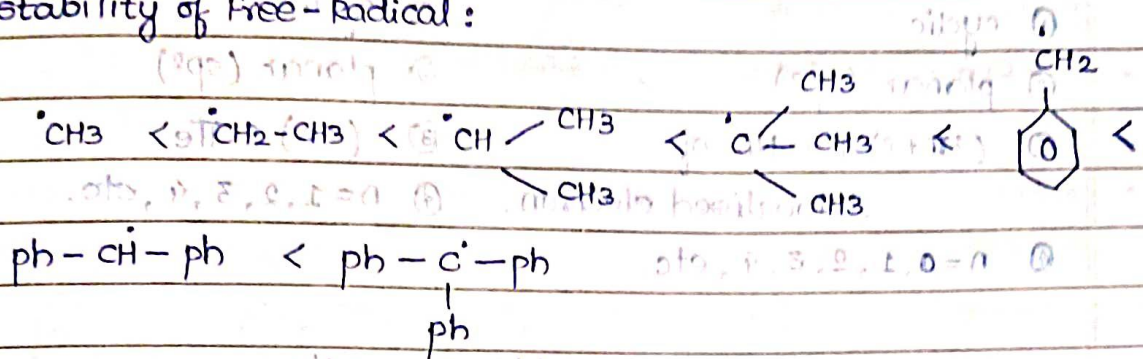 stability of Free-Radical :
•CH3 < •CH2-CH3 < •CH CH3 CH3 < •C CH3 CH3 CH3 < •CH2 <
ph-CH•-ph < ph-C•-ph
ph